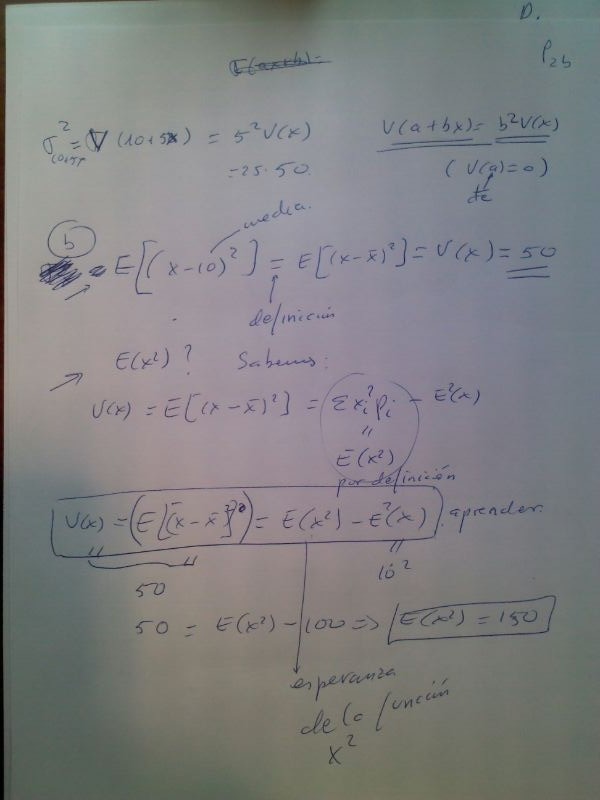 D.
P2b
E(ax+b)=
σ²(10+5x) = V(10+5x) = 5²V(x)
= 25·50
V(a+bx) = b²V(x)
(V(a)=0)
cte
media.
b
E[(x-10)²] = E[(x-x̄)²] = V(x) = 50
definición
E(x²)? Sabemos:
V(x) = E[(x-x̄)²] = Σxi²pi - E²(x)
"
E(x²)
por definición
V(x) = (E[(x-x̄)²]) = E(x²) - E²(x) aprender.
" " "
50 10²
50 = E(x²) - 100 => E(x²) = 150
esperanza
de la función
x²